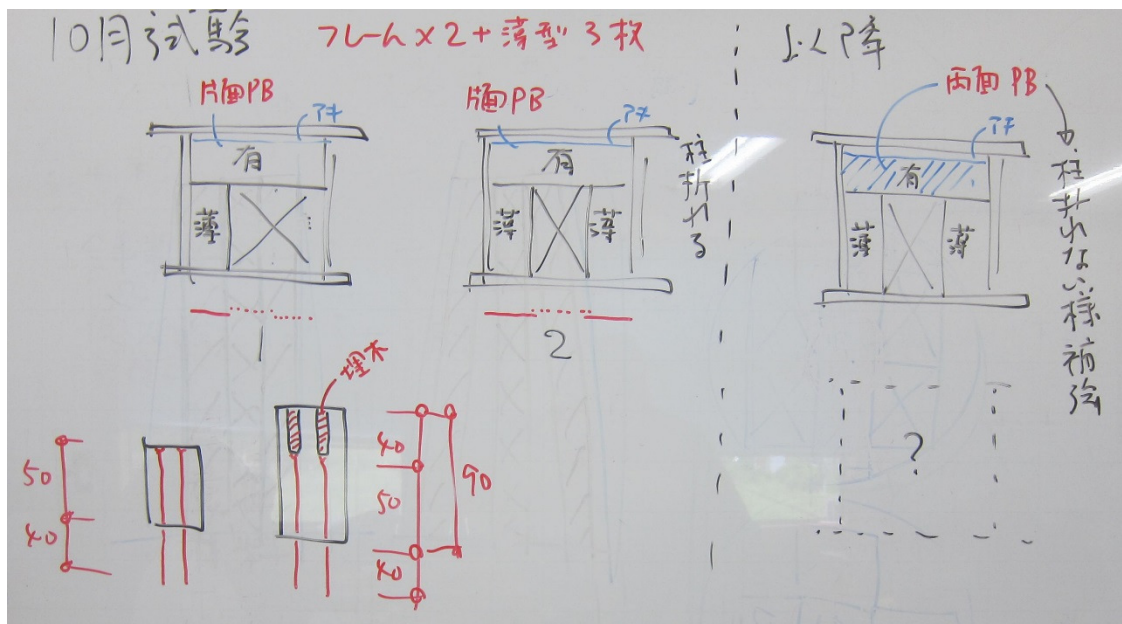 10月試験
フレーム×2+薄型3枚
以降
片面PB
アキ
有
薄
1
片面PB
アキ
有
薄
薄
2
柱折れる
両面PB
アキ
有
薄
薄
柱折れない様補強
?
埋木
50
40
40
50
40
90